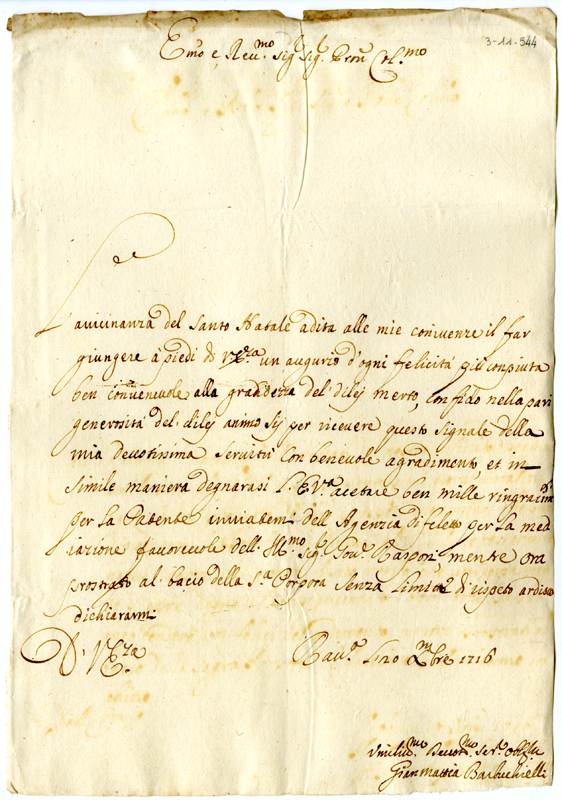 3-11-544
Emo e Reu.mo Sig.r Sig.r Pron Col.mo
L'auicinanza del Santo Natale adita alle mie conuenze il far
giungere à piedi di V.Eza un augurio d'ogni felicità più conpiuta
ben conueneuole alla grandezza del dilej merto, confido nella pari
generosità del dilej animo sij per riceuere questo Signale della
mia deuotissima seruitù con beneuole agradimento, et in
simile maniera degnarasi L'E.Va acetare ben mille ringraciam.ti
per la Patente inuiatemi dell Agenzia di feletto per la med
iazione fauoreuole dell Ill.mo Sig.r Rasponi, mente ora
prostrato al bacio della S.a Porpora Senza Limite di rispeto ardisco
dichiararmi
D' V.Eza
Rau.a 20 Xmbre 1716
Vmiliss.mo Deuot.mo Ser.
Gianmattia